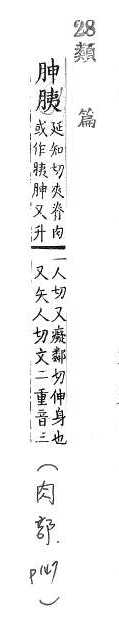 28
類篇
胂胰
延知切夾脊肉
或作胰胂又升
人切又癡鄰切伸身也
又矢人切文二重音三
(肉部. p147)